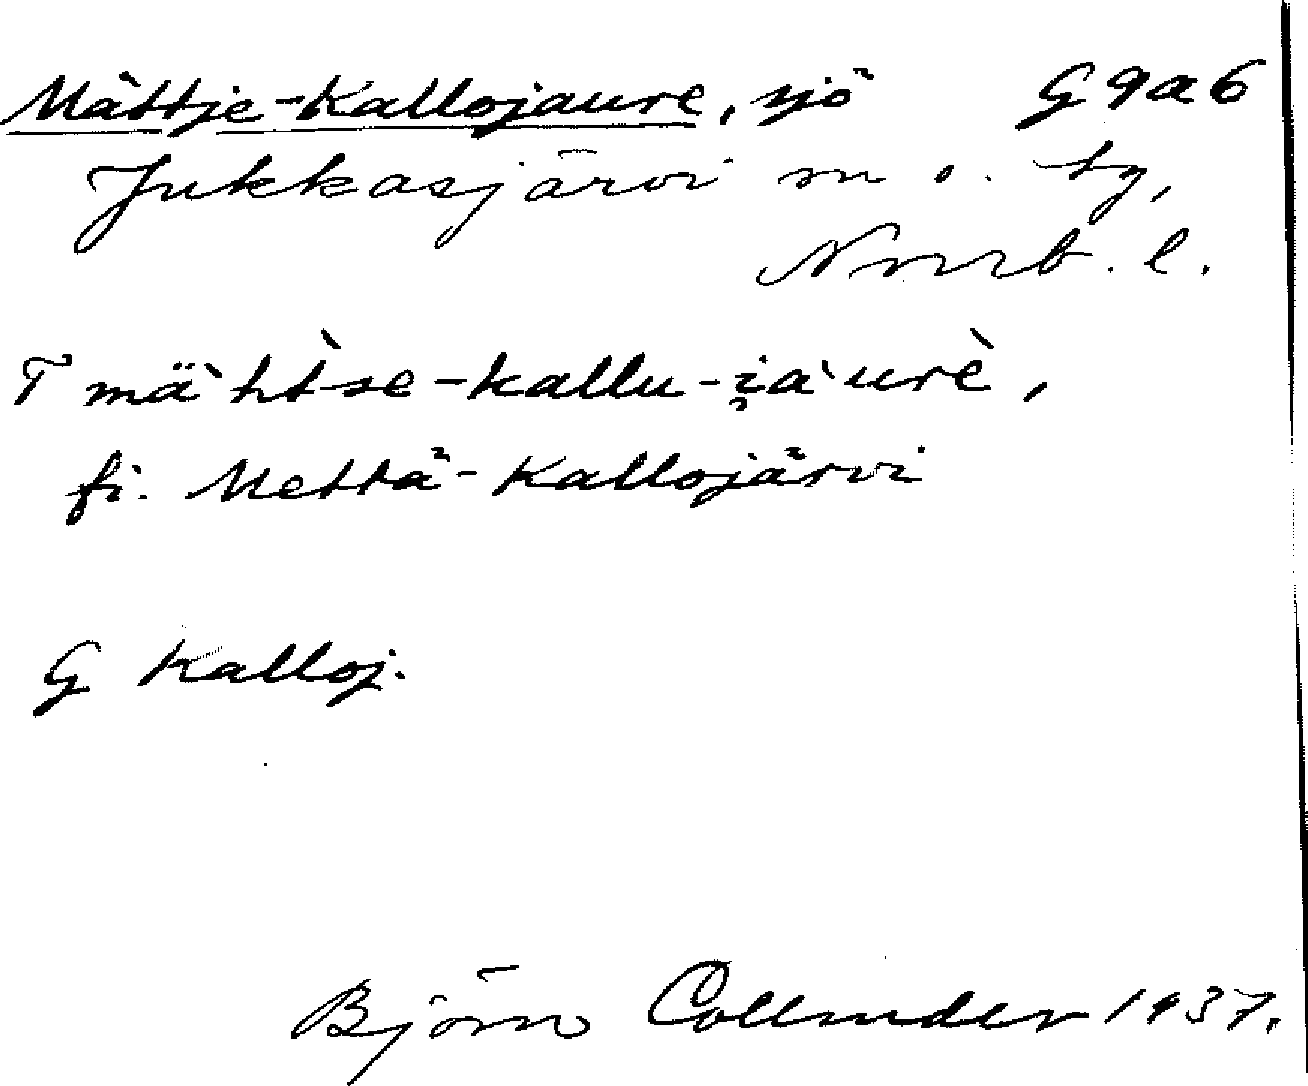 Mättje-Kallojaure, sjö G 9a6
Jukkasjärvi sn o. tg,
Norrb. l.
T mä`ht̀se-kallu-i̯a`urè,
fi. Mettä-Kallojärvi
G Kalloj.
Björn Collinder 1937.